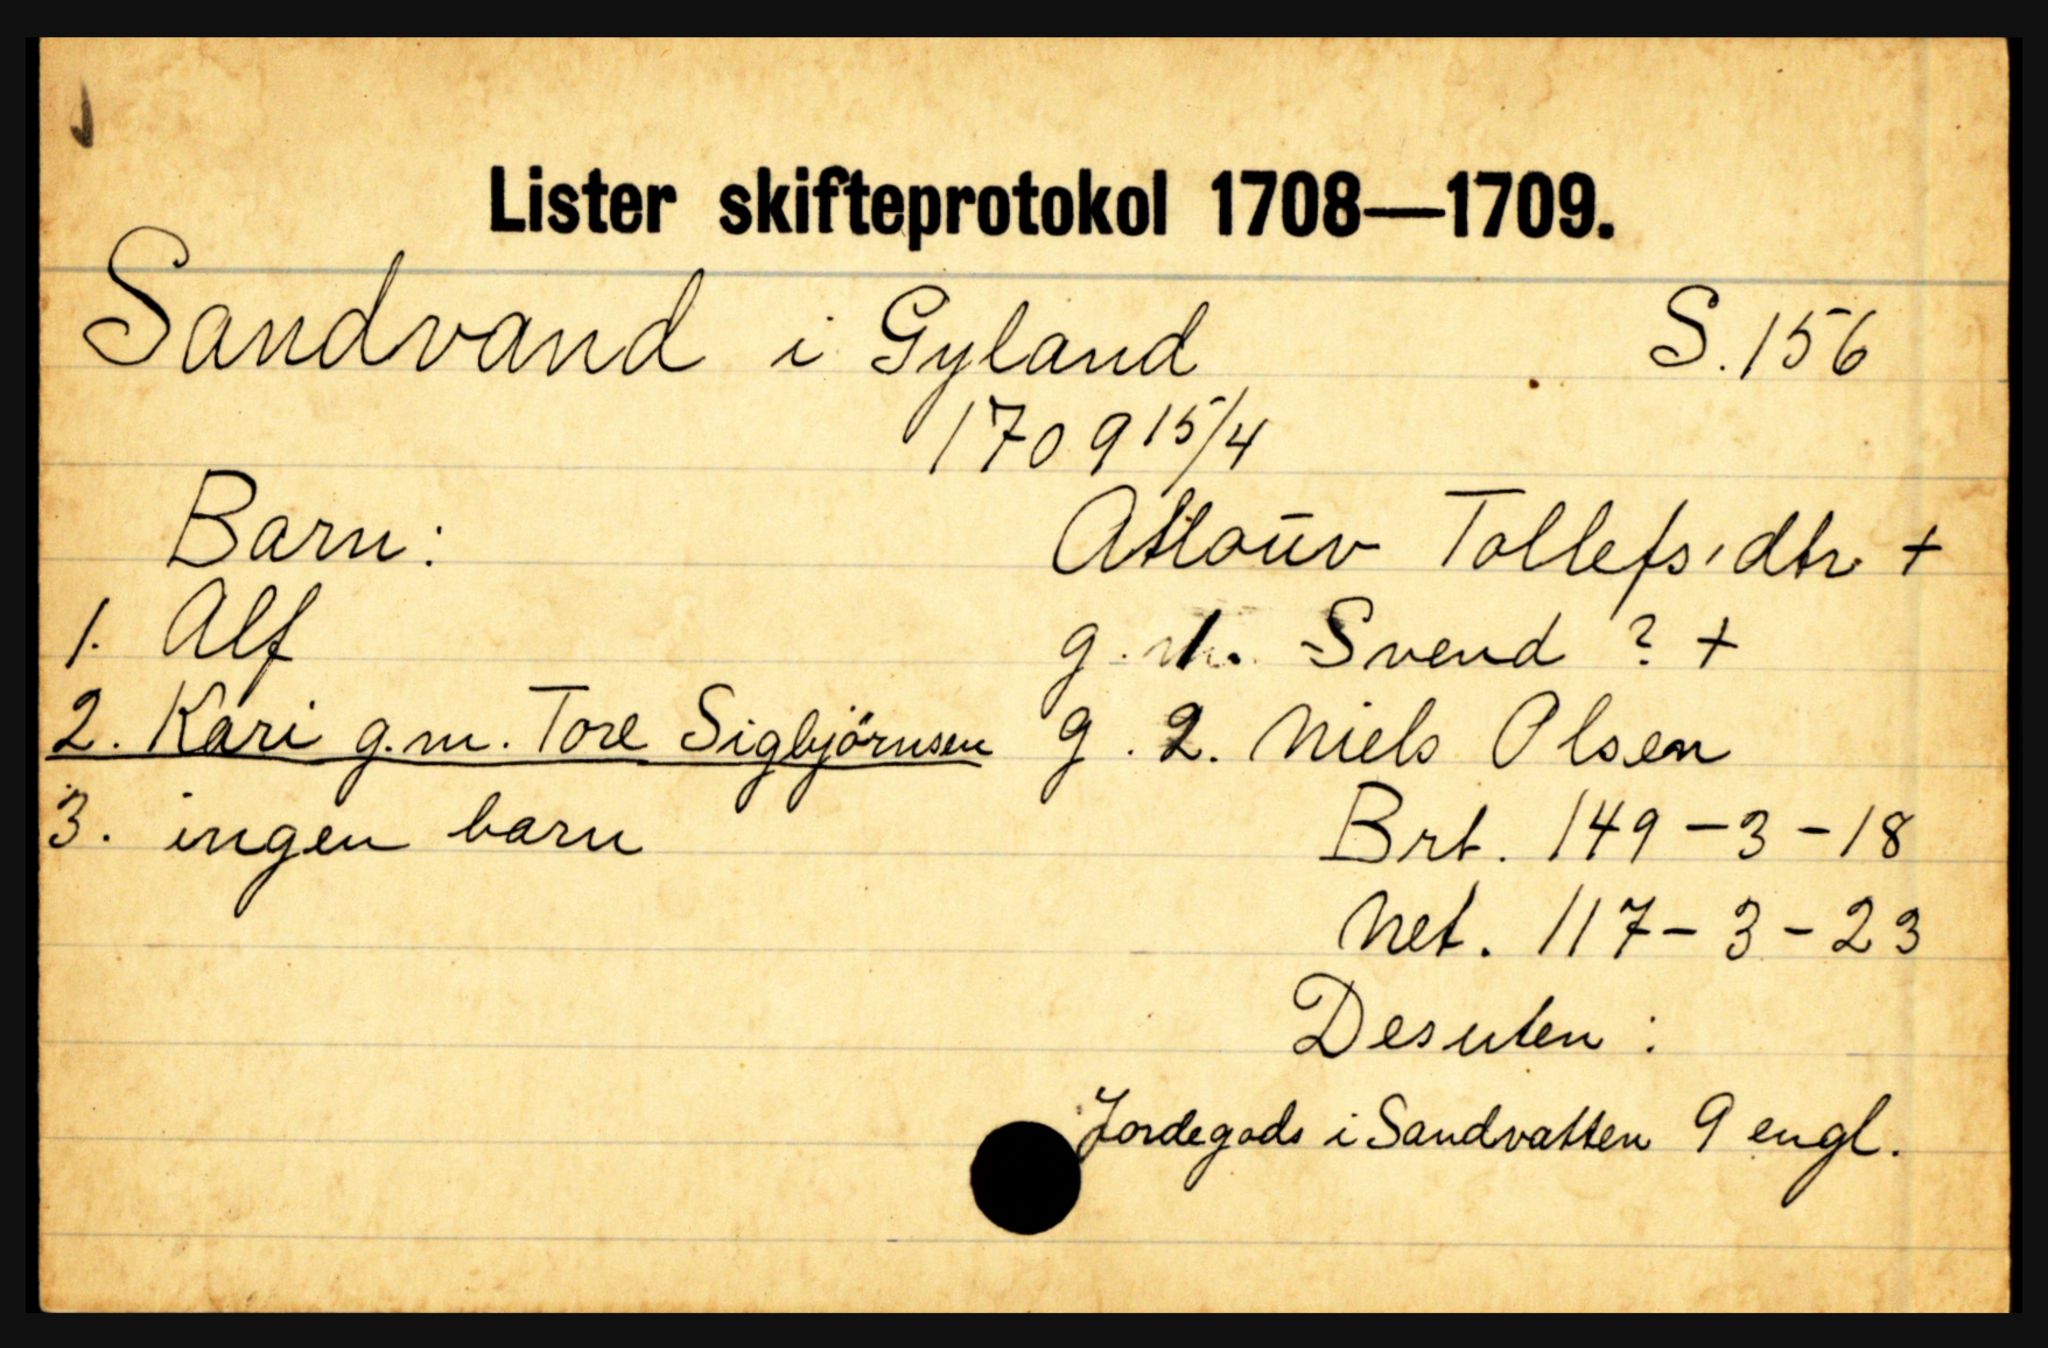 Lister skifteprotokol 1708—1709.
Sandvand i Gyland S. 156
1709 15/4
Barn: Atloūv Tollefs.dtr +
1. Alf g. 1. Svend ? +
2. Kari g.m. Tore Sigbjörnsen g. 2. Niels Olsen
3. ingen barn Brt. 149-3-18
Net. 117-3-23
Desuten :
Jordegods i Sandvatten 9 engl.